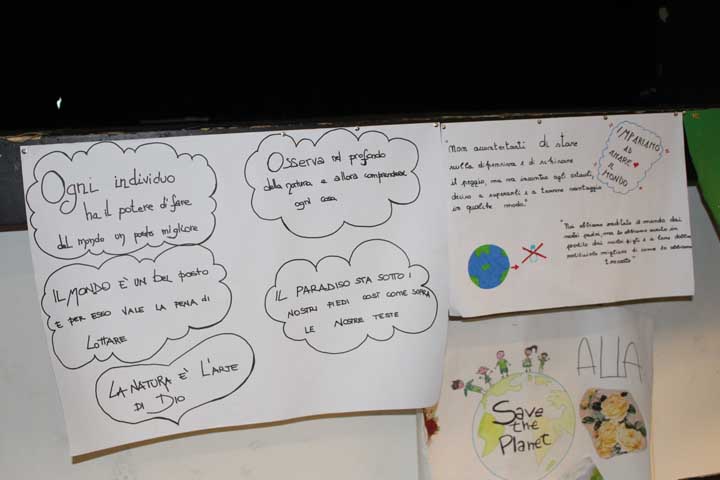 Ogni individuo
ha il potere di fare
del mondo un posto migliore
Osserva nel profondo
della natura e allora comprenderai
ogni cosa
IL MONDO È UN BEL POSTO
E PER ESSO VALE LA PENA DI
LOTTARE
IL PARADISO STA SOTTO I
NOSTRI PIEDI COSÌ COME SOPRA
LE NOSTRE TESTE
LA NATURA È L'ARTE
DI DIO
"Non accontentarti di stare
sulla difensiva e di schivare
il peggio, ma va incontro agli ostacoli,
deciso a superarli e a trarne vantaggio
in qualche modo."
IMPARIAMO
AD
AMARE
IL
MONDO
"Noi abbiamo ereditato il mondo dai
nostri padri, ma lo abbiamo avuto in
prestito dai nostri figli e a loro dobbiamo
restituirlo migliore di come lo abbiamo
trovato"
Save
the
Planet